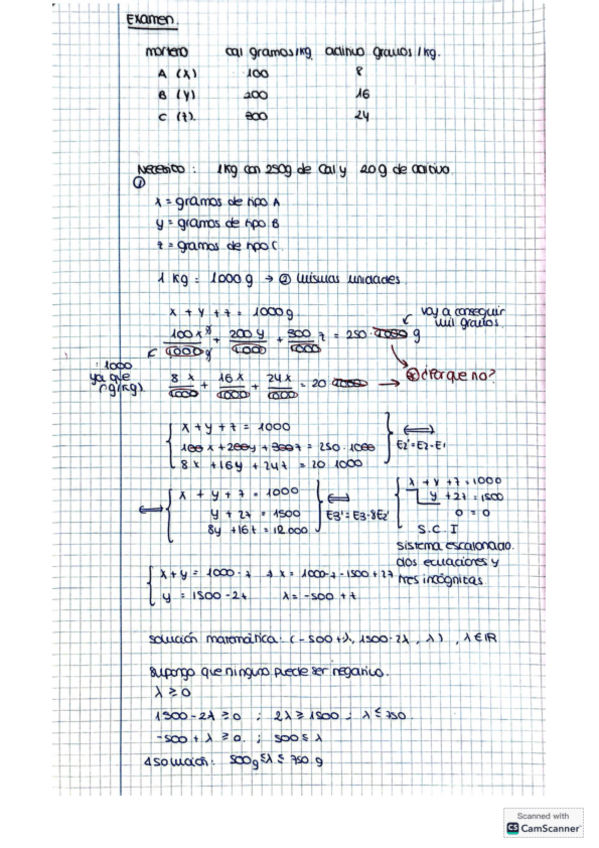 Examen.
mortero cal gramos/kg. aditivo gramos/kg.
A (x) 100 8
B (y) 200 16
C (z). 300 24
Necesito: 1kg con 250g de cal y 20g de aditivo
①
x = gramos de tipo A
y = gramos de tipo B
z = gramos de tipo C.
1 kg = 1000 g → ② mismas unidades.
x + y + z = 1000 g
voy a conseguir
mil gramos.
100x/1000 + 200y/1000 + 300/1000 z = 250 · 1000 g
: 1000
ya que
(g/kg).
8x/1000 + 16x/1000 + 24x/1000 = 20 1000 → ⊗ ¿Por que no?
x + y + z = 1000
100x + 200y + 300z = 250 · 1000
8x + 16y + 24z = 20 1000
⟺
E2'=E2-E1
⟺ x + y + z = 1000
y + 2z = 1500
8y + 16z = 12.000
⟺
E3'=E3-8E2'
x + y + z = 1000
y + 2z = 1500
0 = 0
S.C.I
sistema escalonado.
dos ecuaciones y
tres incógnitas
x + y = 1000 - z x = 1000-z-1500+2z
y = 1500 - 2z x = -500 + z
solución matemática: (-500+λ, 1500-2λ, λ), λ∈ℝ
supongo que ninguno puede ser negativo.
λ ≥ 0
1500 - 2λ ≥ 0 ; 2λ ≥ 1500 ; λ ≤ 750.
-500 + λ ≥ 0. ; 500 ≤ λ
solución: 500g ≤ λ ≤ 750 g
Scanned with
CS CamScanner